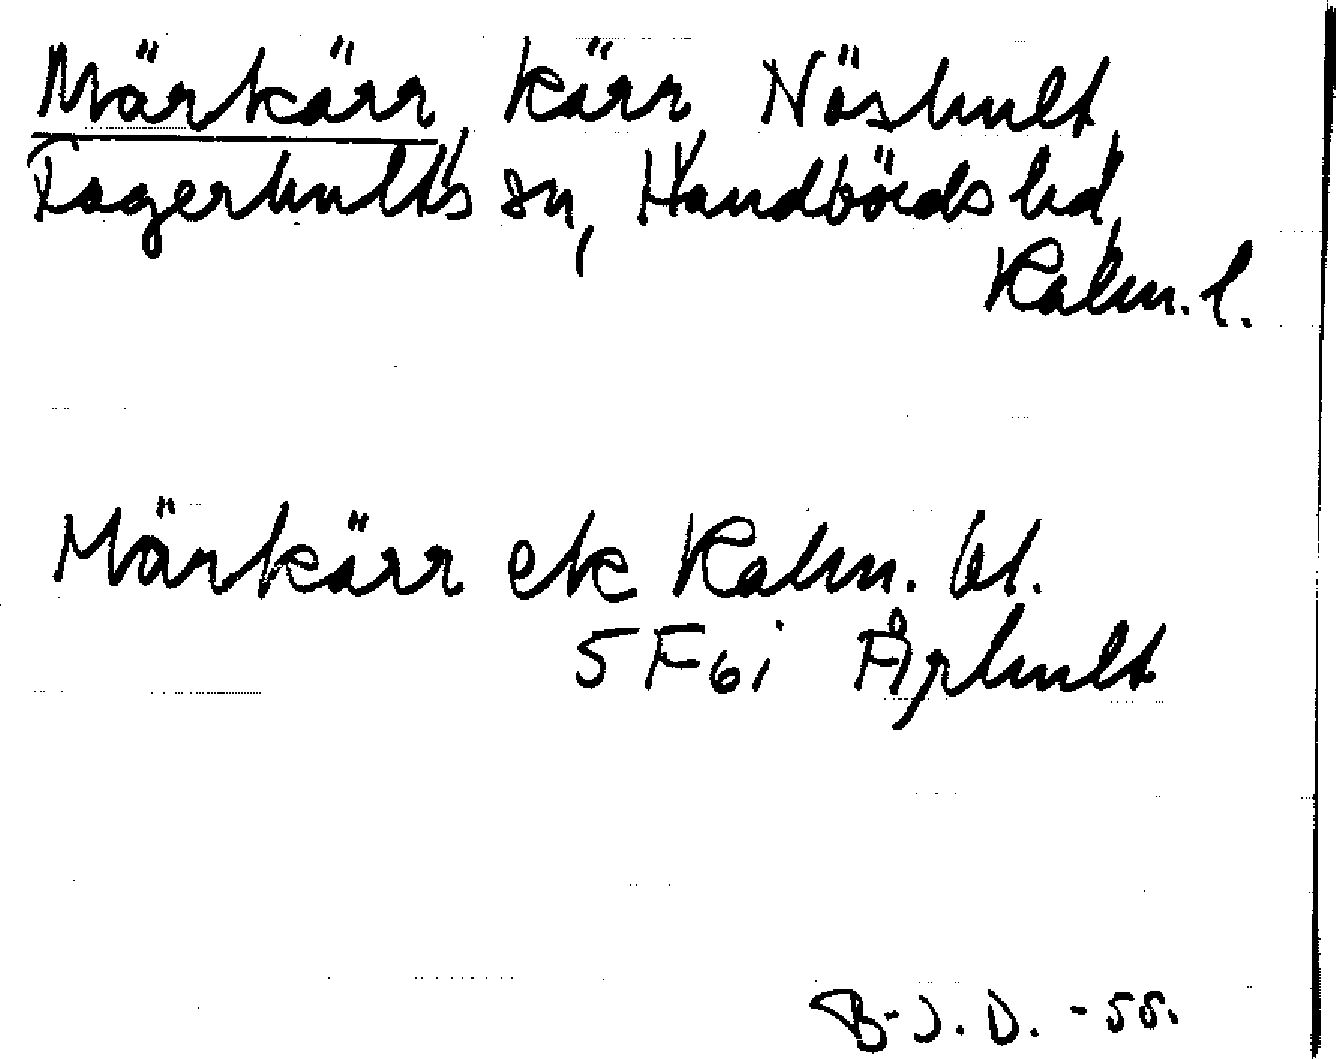 Märkärr, kärr, Näshult,
Fagerhults sn, Handbörds hd,
Kalm. l.
Märkärr ek Kalm. bl.
5 F6i Århult
B-J. D. -55.